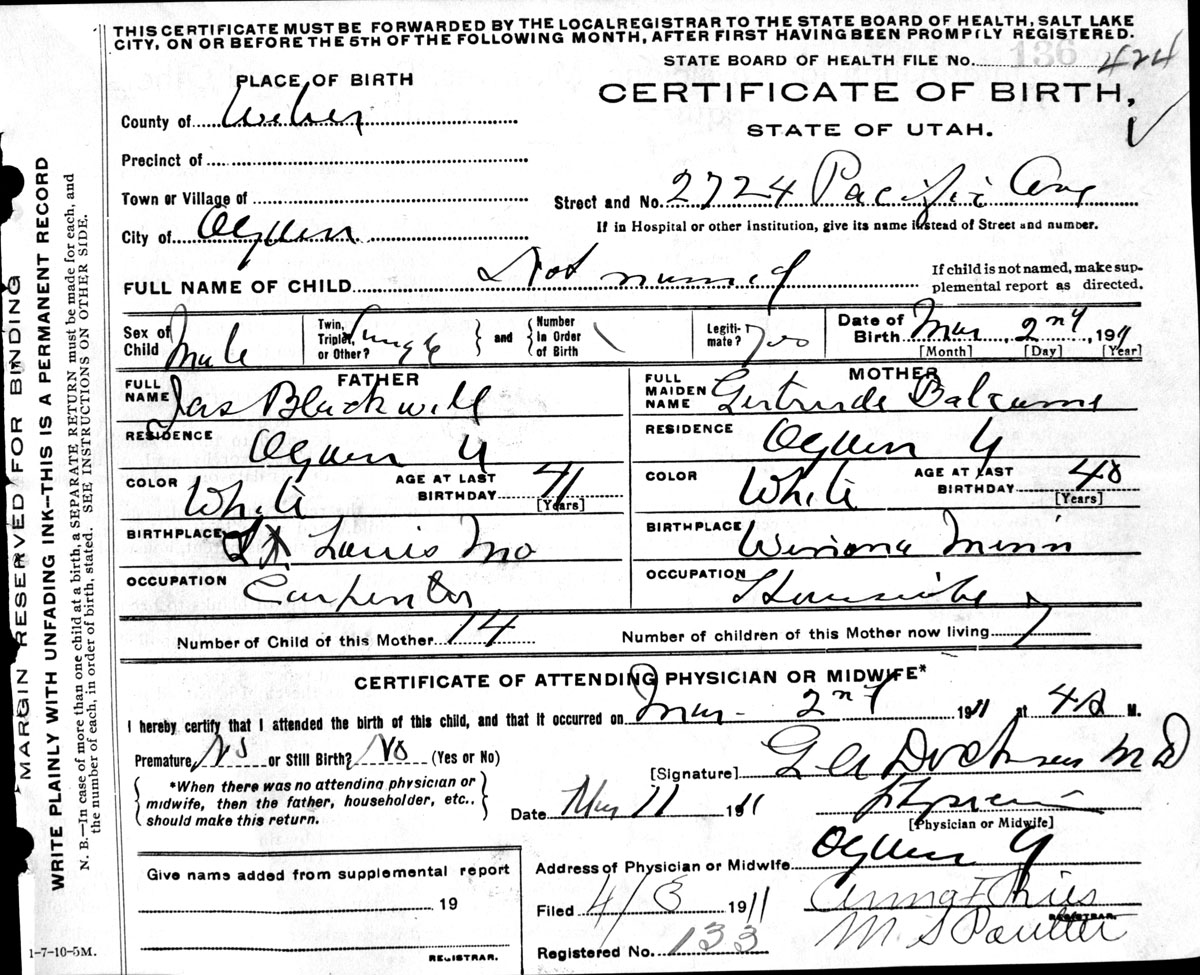 THIS CERTIFICATE MUST BE FORWARDED BY THE LOCAL REGISTRAR TO THE STATE BOARD OF HEALTH, SALT LAKE
CITY, ON OR BEFORE THE 5TH OF THE FOLLOWING MONTH, AFTER FIRST HAVING BEEN PROMPTLY REGISTERED.
STATE BOARD OF HEALTH FILE No. 136 424
PLACE OF BIRTH
CERTIFICATE OF BIRTH,
STATE OF UTAH.
County of Weber
Precinct of
Town or Village of
Street and No. 2724 Pacific Ave
City of Ogden
If in Hospital or other Institution, give its name instead of Street and number.
FULL NAME OF CHILD Not named
If child is not named, make sup-
plemental report as directed.
Sex of Child Male
Twin, Triplet, or Other? Single
and
Number In Order of Birth
Legiti-mate? Yes
Date of Birth Mar 2nd, 1911
[Month] [Day] [Year]
FATHER
FULL NAME Jas Blackwell
RESIDENCE Ogden U
COLOR White
AGE AT LAST BIRTHDAY 41 [Years]
BIRTHPLACE St Louis Mo
OCCUPATION Carpenter
MOTHER
FULL MAIDEN NAME Gertrude
RESIDENCE Ogden U
COLOR White
AGE AT LAST BIRTHDAY 40 [Years]
BIRTHPLACE Winona Minn
OCCUPATION Housewife
Number of Child of this Mother 14
Number of children of this Mother now living 7
CERTIFICATE OF ATTENDING PHYSICIAN OR MIDWIFE*
I hereby certify that I attended the birth of this child, and that it occurred on Mar 2nd 1911 at 4 a M.
Premature No or Still Birth? No (Yes or No)
*When there was no attending physician or
midwife, then the father, householder, etc.,
should make this return.
[Signature] MD
Date 11 1911
Physician
[Physician or Midwife]
Address of Physician or Midwife Ogden U
Give name added from supplemental report
19
REGISTRAR.
Filed 4/3 1911
Anna Ries
REGISTRAR.
Registered No. 133
M. S.
1-7-10-5M.
MARGIN RESERVED FOR BINDING
WRITE PLAINLY WITH UNFADING INK—THIS IS A PERMANENT RECORD
N. B.—In case of more than one child at a birth, a SEPARATE RETURN must be made for each, and
the number of each, in order of birth, stated. SEE INSTRUCTIONS ON OTHER SIDE.